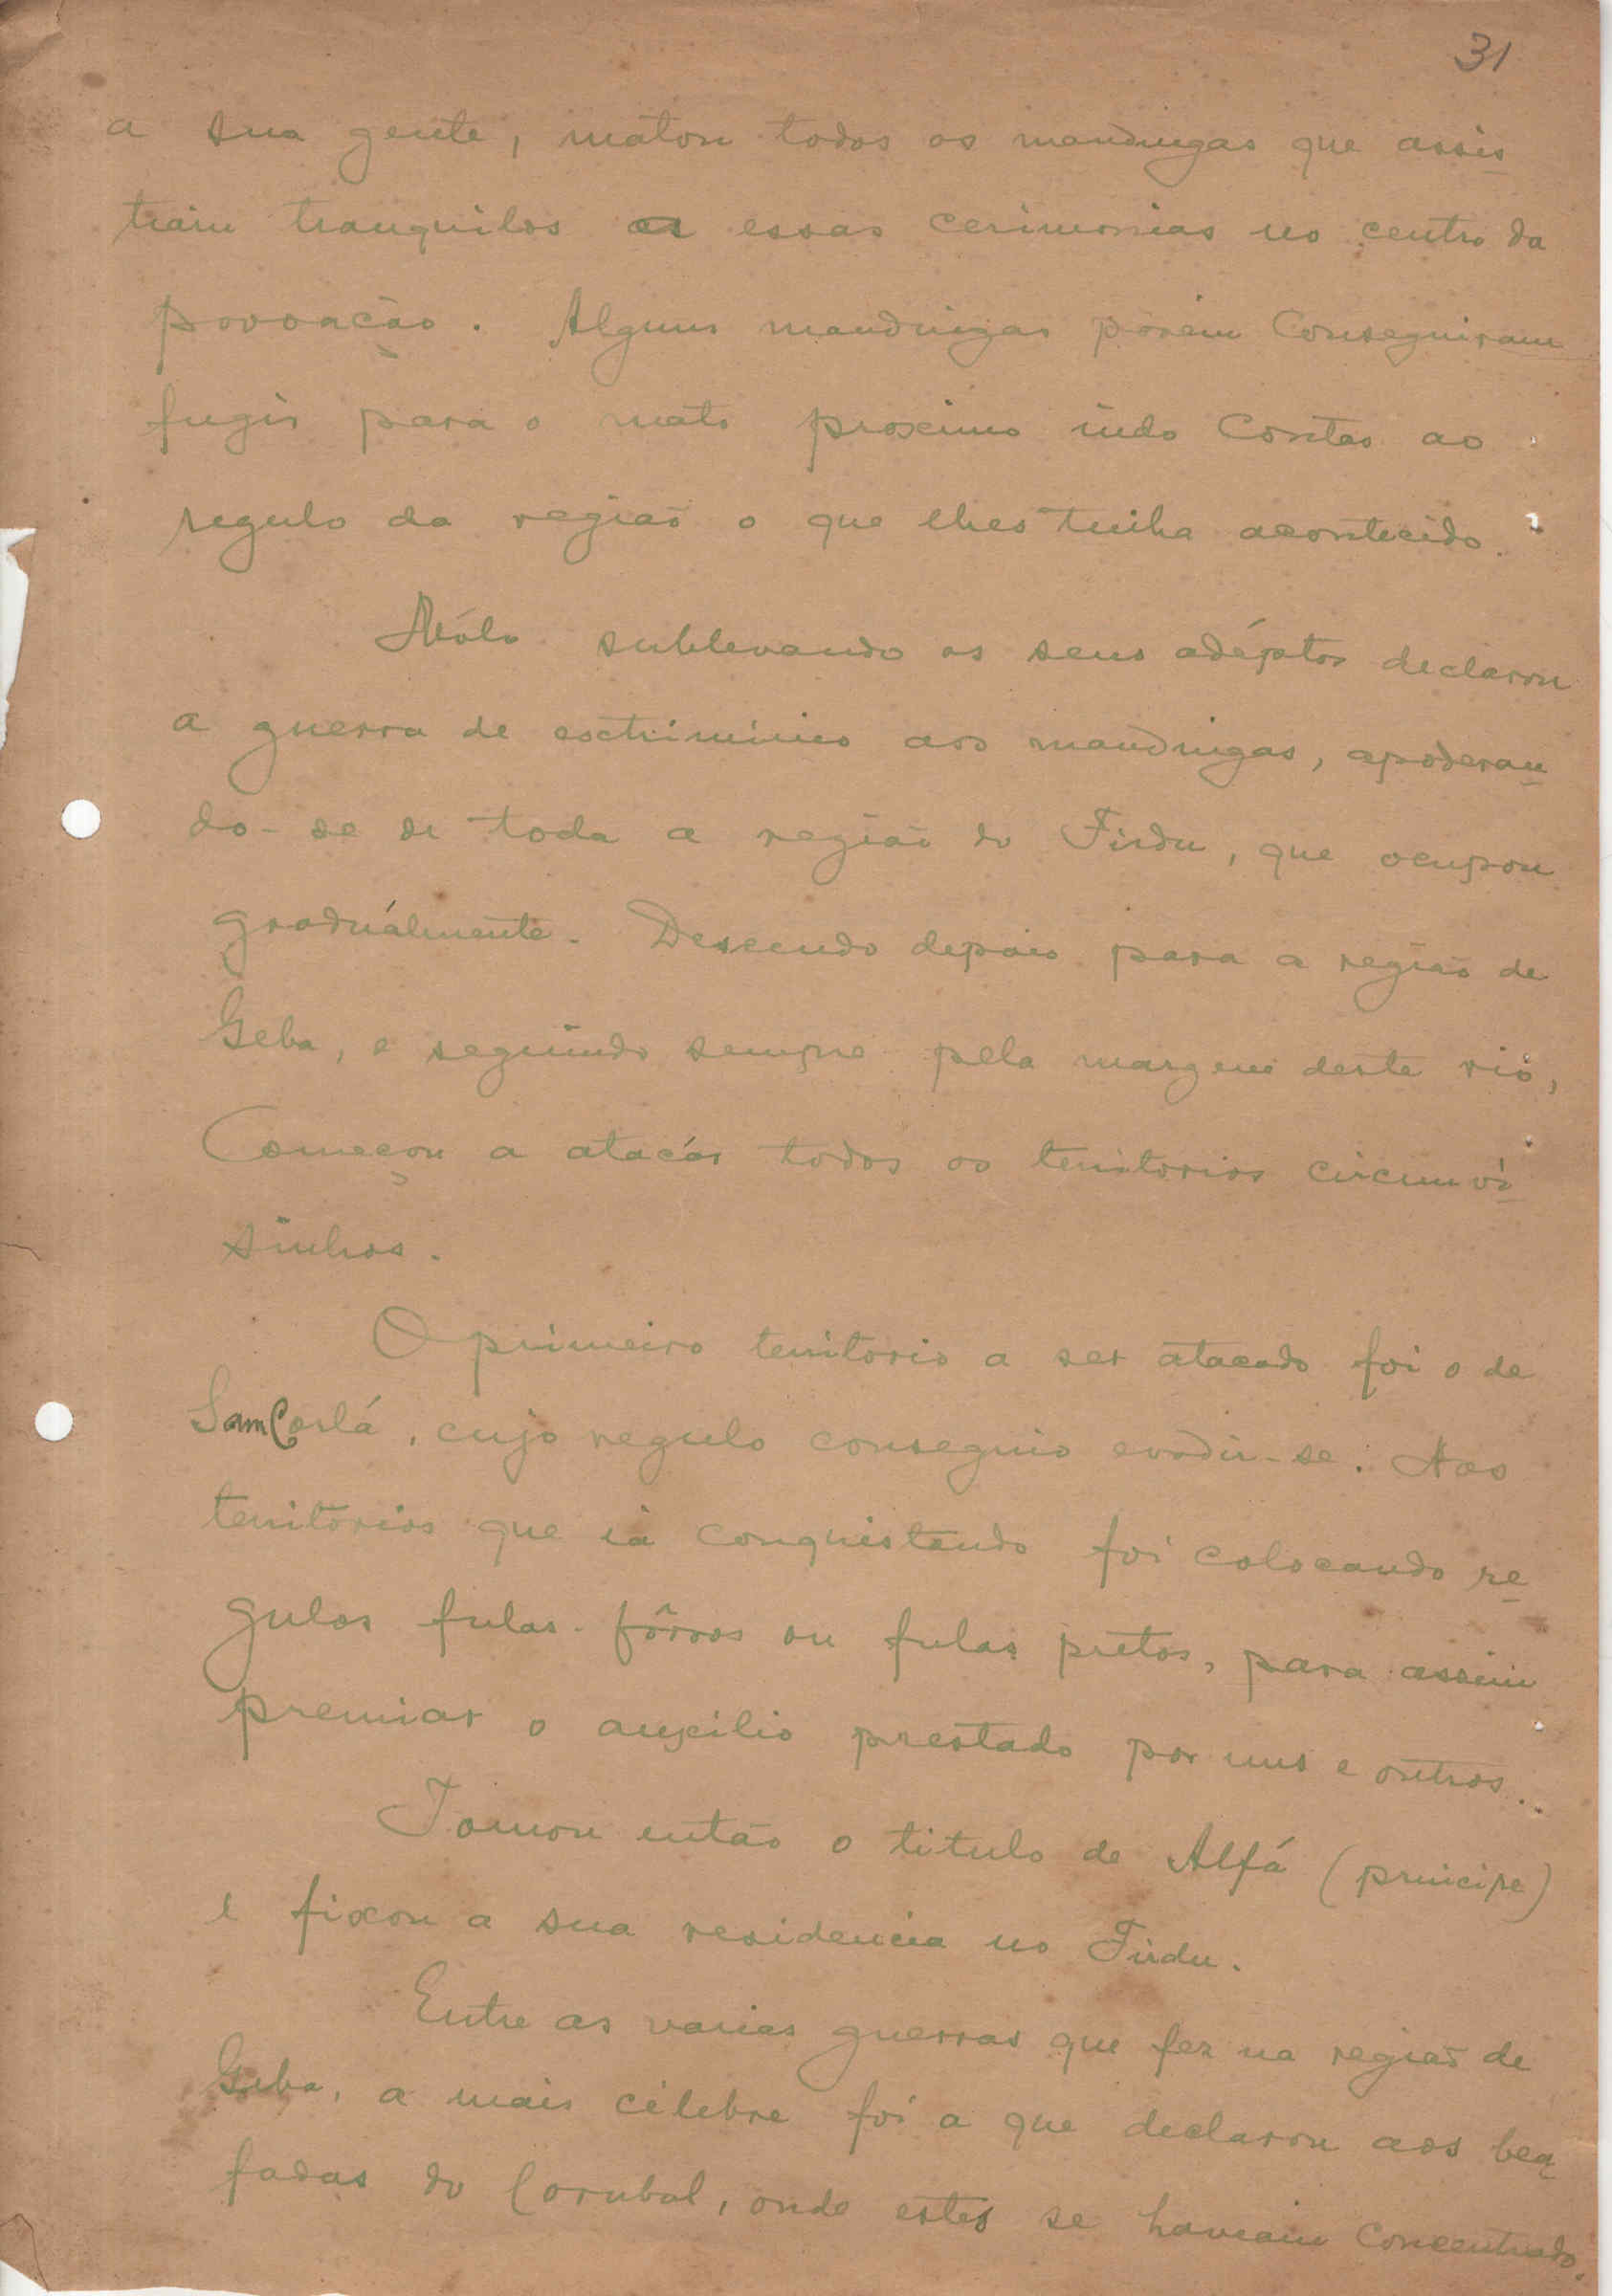 31
a sua gente, matou todos os mandingas que assis
tiam tranquilos a essas cerimonias no centro da
povoação. Alguns mandingas porem conseguiram
fugir para o mato proximo indo contar ao
regulo da região o que lhes tinha acontecido.
Mólo sublevando os seus adéptos declarou
a guerra de extriminio aos mandingas, apoderan
do-se de toda a região do Firdu, que ocupou
graduálmente. Descendo depois para a região de
Geba, e seguindo sempre pela margem deste rio,
Começou a atacár todos os territorios circumvi
sinhos.
O primeiro territorio a ser atacado foi o de
SamCorlá, cujo regulo conseguio evadir-se. Nos
territórios que ia conquistando foi colocando re
gulos fulas-fôrros ou fulas pretos, para assim
premiar o auxilio prestado por uns e outros.
Tomou então o titulo de Alfá (principe)
e fixou a sua residencia no Firdu.
Entre as varias guerras que fez na região de
Geba, a mais célebre foi a que declarou aos bea
fadas do Corubal, onde estes se haviam concentrado.